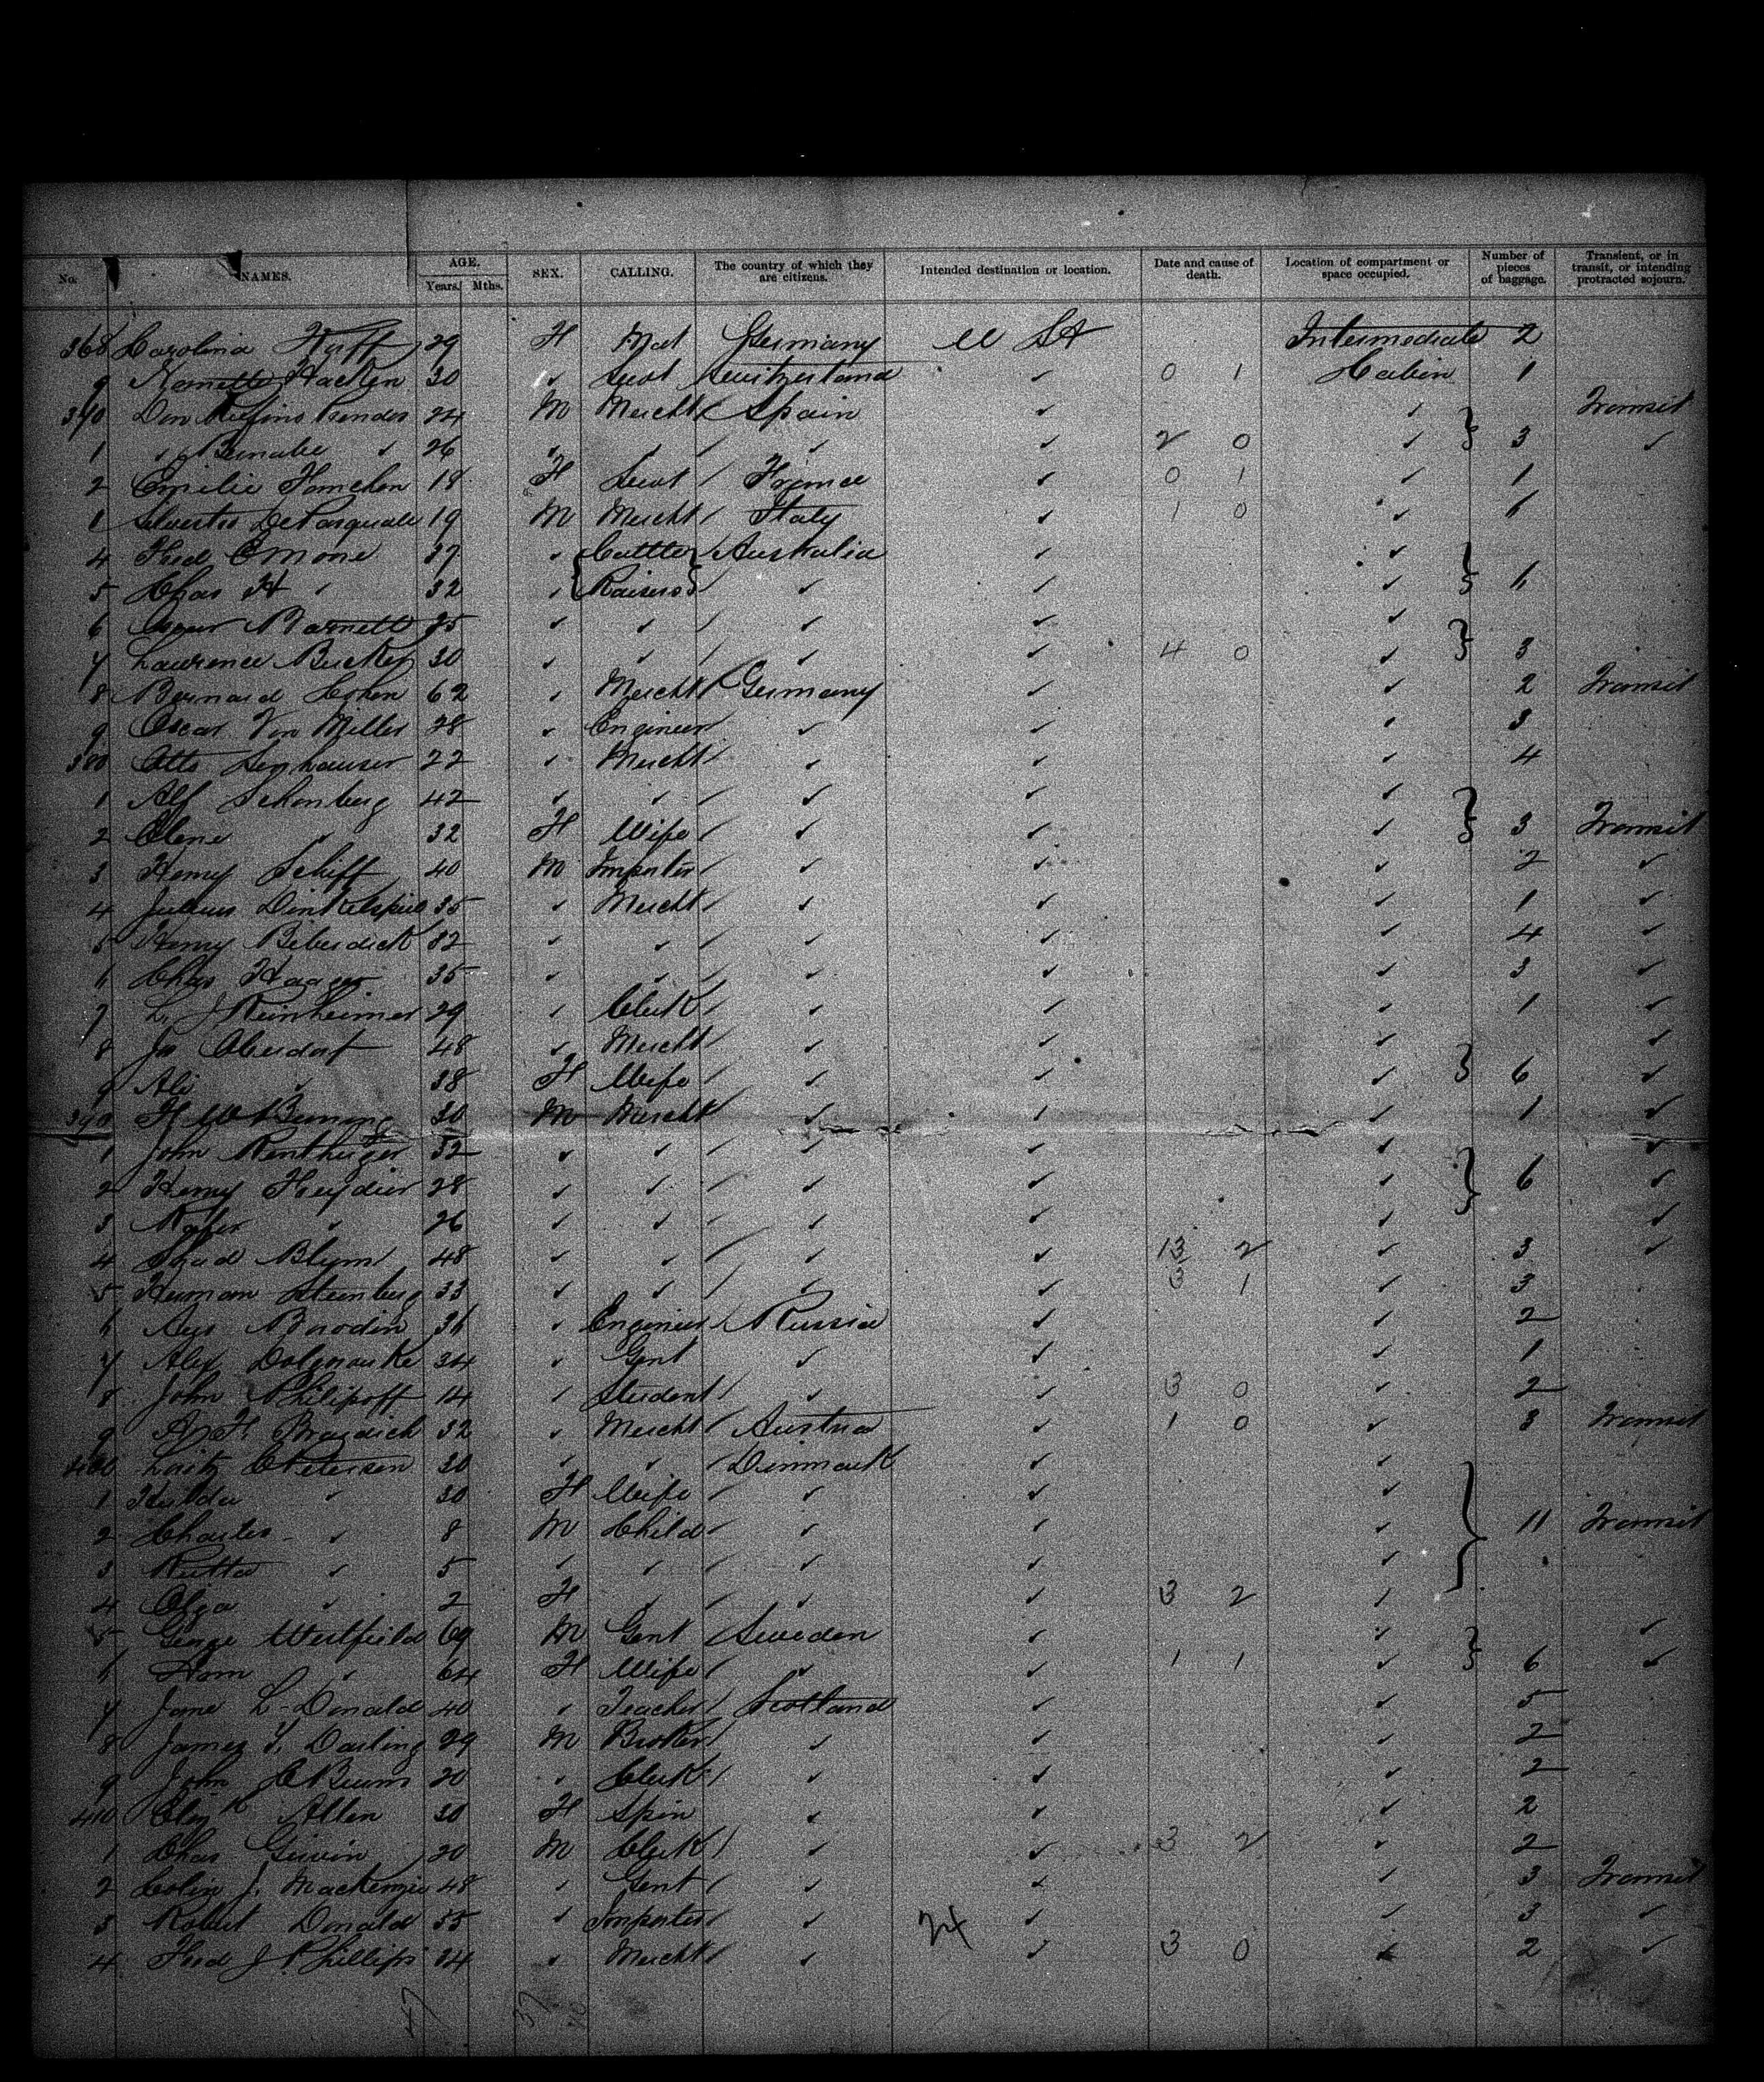 No. NAMES. AGE. Years. Mths. SEX. CALLING. The country of which they are citizens. Intended destination or location. Date and cause of death. Location of compartment or space occupied. Number of pieces of baggage. Transient, or in transit, or intending protracted sojourn.
368 Carolina 29 F Germany U St Intermediate 2
9 Nanette Hacken 30 ✓ Servt Switzerland ✓ 0 1 Cabin 1
370 Don 24 M Mercht Spain ✓ ✓ Transit
1 " Bernabe ✓ 26 ✓ ✓ ✓ ✓ 2 0 ✓ } 3 ✓
2 Emilie 18 F Servt France ✓ 0 1 ✓ 1
De Pasquale 19 M Mercht Italy ✓ 1 0 ✓
4 Fred E Mone 37 ✓ { Cattle } Australia ✓ ✓
5 Chas H ✓ 32 ✓ { Raisers } ✓ ✓ ✓ }
6 Oscar Barnett ✓ ✓ ✓ ✓ ✓
7 Laurence Buckley 30 ✓ ✓ ✓ ✓ 4 0 ✓ } 3
8 Bernard Cohen 62 ✓ Mercht Germany ✓ ✓ 2 Transit
9 Oscar Von Miller 28 ✓ Engineer ✓ ✓ ✓ 3
380 Otto 22 ✓ Mercht ✓ ✓ ✓ 4
1 Alf Schonberg 42 ✓ ✓ ✓ ✓ ✓
2 Olene ✓ 32 F Wife ✓ ✓ ✓ } 3 Transit
3 Henry Schiff 40 M Importer ✓ ✓ ✓ 2 ✓
4 Julius Dinkelspiel 35 ✓ Mercht ✓ ✓ ✓ 1 ✓
5 Henry 32 ✓ ✓ ✓ ✓ ✓ 4 ✓
6 Chas Haager 35 ✓ ✓ ✓ ✓ ✓ 3 ✓
7 L. J Reinheimer 29 ✓ Clerk ✓ ✓ ✓ 1 ✓
8 Oberdorf 48 ✓ Mercht ✓ ✓ ✓ ✓
9 ✓ 38 F Wife ✓ ✓ ✓ } 6 ✓
390 30 M Mercht ✓ ✓ ✓ 1 ✓
1 John 32 ✓ ✓ ✓ ✓ ✓ ✓
2 Henry 28 ✓ ✓ ✓ ✓ ✓ } 6 ✓
3 ✓ 26 ✓ ✓ ✓ ✓ ✓ ✓
4 Blum 48 ✓ ✓ ✓ ✓ 13 2 ✓ 3 ✓
5 Herman Steinberg 33 ✓ ✓ ✓ ✓ 3 1 ✓ 3
6 Borodin 36 ✓ Engineer Russia ✓ ✓ 2
7 Alex 34 ✓ Gent ✓ ✓ ✓ 1
8 John Philipoff 14 ✓ Student ✓ ✓ 3 0 ✓ 2
9 32 ✓ Mercht Austria ✓ 1 0 ✓ 3 Transit
400 Lauritz C Petersen 30 ✓ ✓ Dinmark ✓ ✓
1 Hulda ✓ 30 F Wife ✓ ✓ ✓
2 Charles ✓ 8 M Child ✓ ✓ ✓ } 11 Transit
3 Rutta ✓ 5 ✓ ✓ ✓ ✓ ✓
4 Olga ✓ 2 F ✓ ✓ ✓ 3 2 ✓
5 George Westfield 69 M Gent Sweden ✓ ✓ ✓
6 ✓ 64 F Wife ✓ ✓ 1 1 ✓ } 6 ✓
7 Jane L. Donald 40 ✓ Teacher Scotland ✓ ✓ 5
8 James T. Darling 29 M Broker ✓ ✓ ✓ 2
9 John 20 ✓ Clerk ✓ ✓ ✓ 2
410 Elizth Allen 30 F Spin ✓ ✓ ✓ 2
1 Chas Girvin 20 M Clerk ✓ ✓ 3 2 ✓ 2
2 Colin J. Mackenzie 48 ✓ Gent ✓ ✓ ✓ 3 Transit
3 Robert Donald 55 ✓ Importer ✓ 24 ✓ ✓ 3 ✓
4 Fred J Phillips 24 ✓ Mercht ✓ ✓ 3 0 ✓ 2 ✓
47 37 10